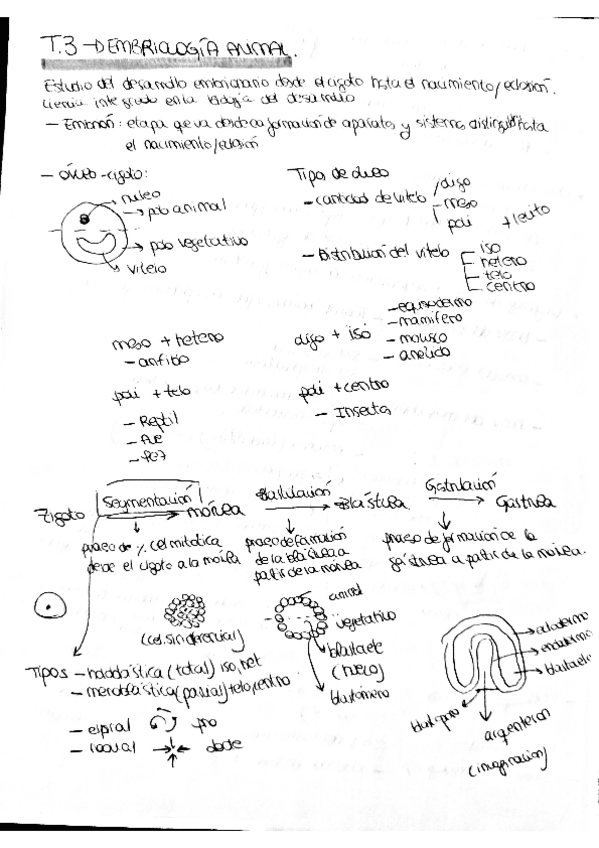 T.3 → EMBRIOLOGÍA ANIMAL.
Estudio del desarrollo embrionario desde el cigoto hasta el nacimiento/eclosión.
Ciencia integrada en la biología del desarrollo
- Embrión: etapa que va desde la formación de aparatos y sistemas distinguibles hasta
el nacimiento/eclosión
- óvulo-cigoto:
núcleo
polo animal
polo vegetativo
vitelo
Tipos de óvulo
- cantidad de vitelo
oligo
meso
poli + levito
- Distribución del vitelo
iso
hetero
telo
centro
meso + hetero
- anfibio
oligo + iso
- equinodermo
- mamífero
- molusco
- anélido
poli + telo
- Reptil
- Ave
- Pez
poli + centro
- Insectos
Zigoto
Segmentación
mórula
Blastulación
Blástula
Gastrulación
Gástrula
proceso de % cel mitótica
desde el cigoto a la mórula
proceso de formación
de la blástula a
partir de la mórula
proceso de formación de la
gástrula a partir de la mórula.
(cel. sin diferenciar)
animal
vegetativo
blastocele
(hueco)
blastómero
ectodermo
endodermo
blastocele
blastoporo
arquenteron
(imaginación)
Tipos - holoblástica (total) iso, het
- meroblástica (parcial) telo, centro
- espiral
pro
- radial